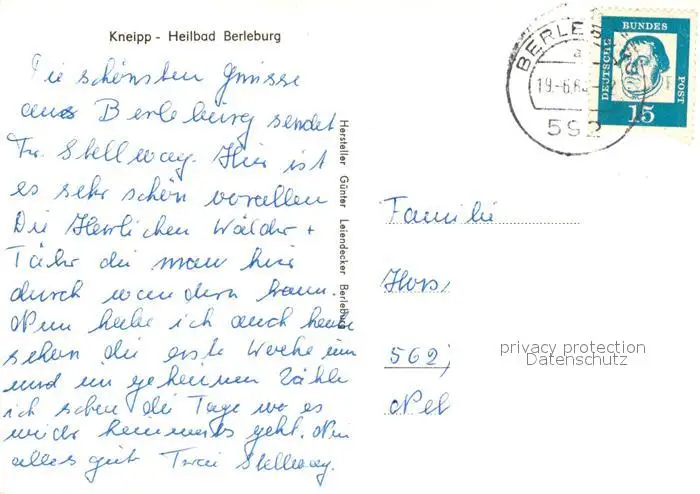 Kneipp - Heilbad Berleburg
Die schönsten Grüsse
aus Berleburg sendet
Fr. Stellway. Hier ist
es sehr schön vorallen
Die Herrlichen Wälder +
Täler die man hier
durch wandern kann.
Nun habe ich auch heute
schon die erste Woche um
und im geheimen Zähle
ich schon die Tage wo es
wieder heimwärts geht. Nun
alles gute Frau Stellway.
Hersteller Günter Leiendecker Berleburg
BERLEB
a
19.-6.6
592
DEUTSCHE BUNDES POST
15
Familie
Hors
562
Nel
privacy protection
Datenschutz